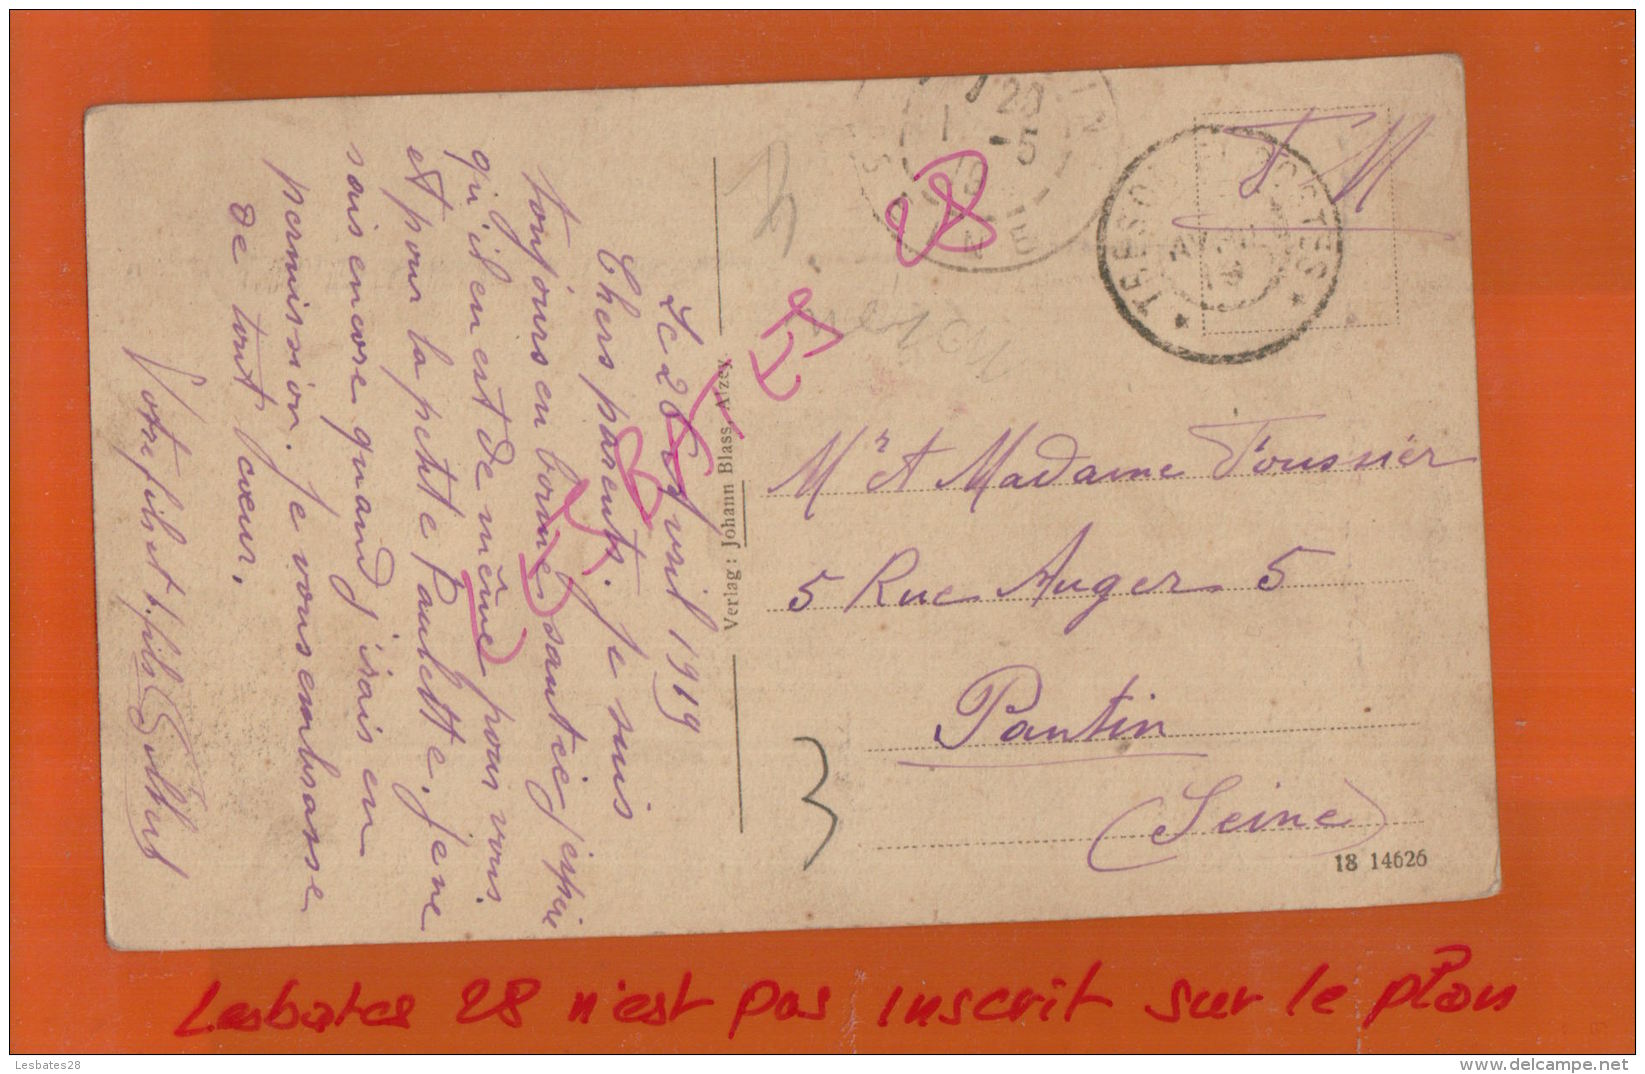 Le 26 Avril 1919
Chers parents. Je suis
toujours en bonne santé j'espère
qu'il en est de même pour vous
et pour la petite Paulette. Je ne
sais encore quand j'irais en
permission. Je vous embrasse
de tout cœur.
Votre fils et b.fils Gilbert
Verlag: Johann Blass, Alzey
F M
TRESOR ET POSTES
AVRIL
19
SEINE
Mr et Madame
5 Rue Auger 5
Pantin
(Seine)
3
18 14626
LESBATES 28
Lesbates 28 n'est pas inscrit sur le plan
Lesbates28
delcampe.net